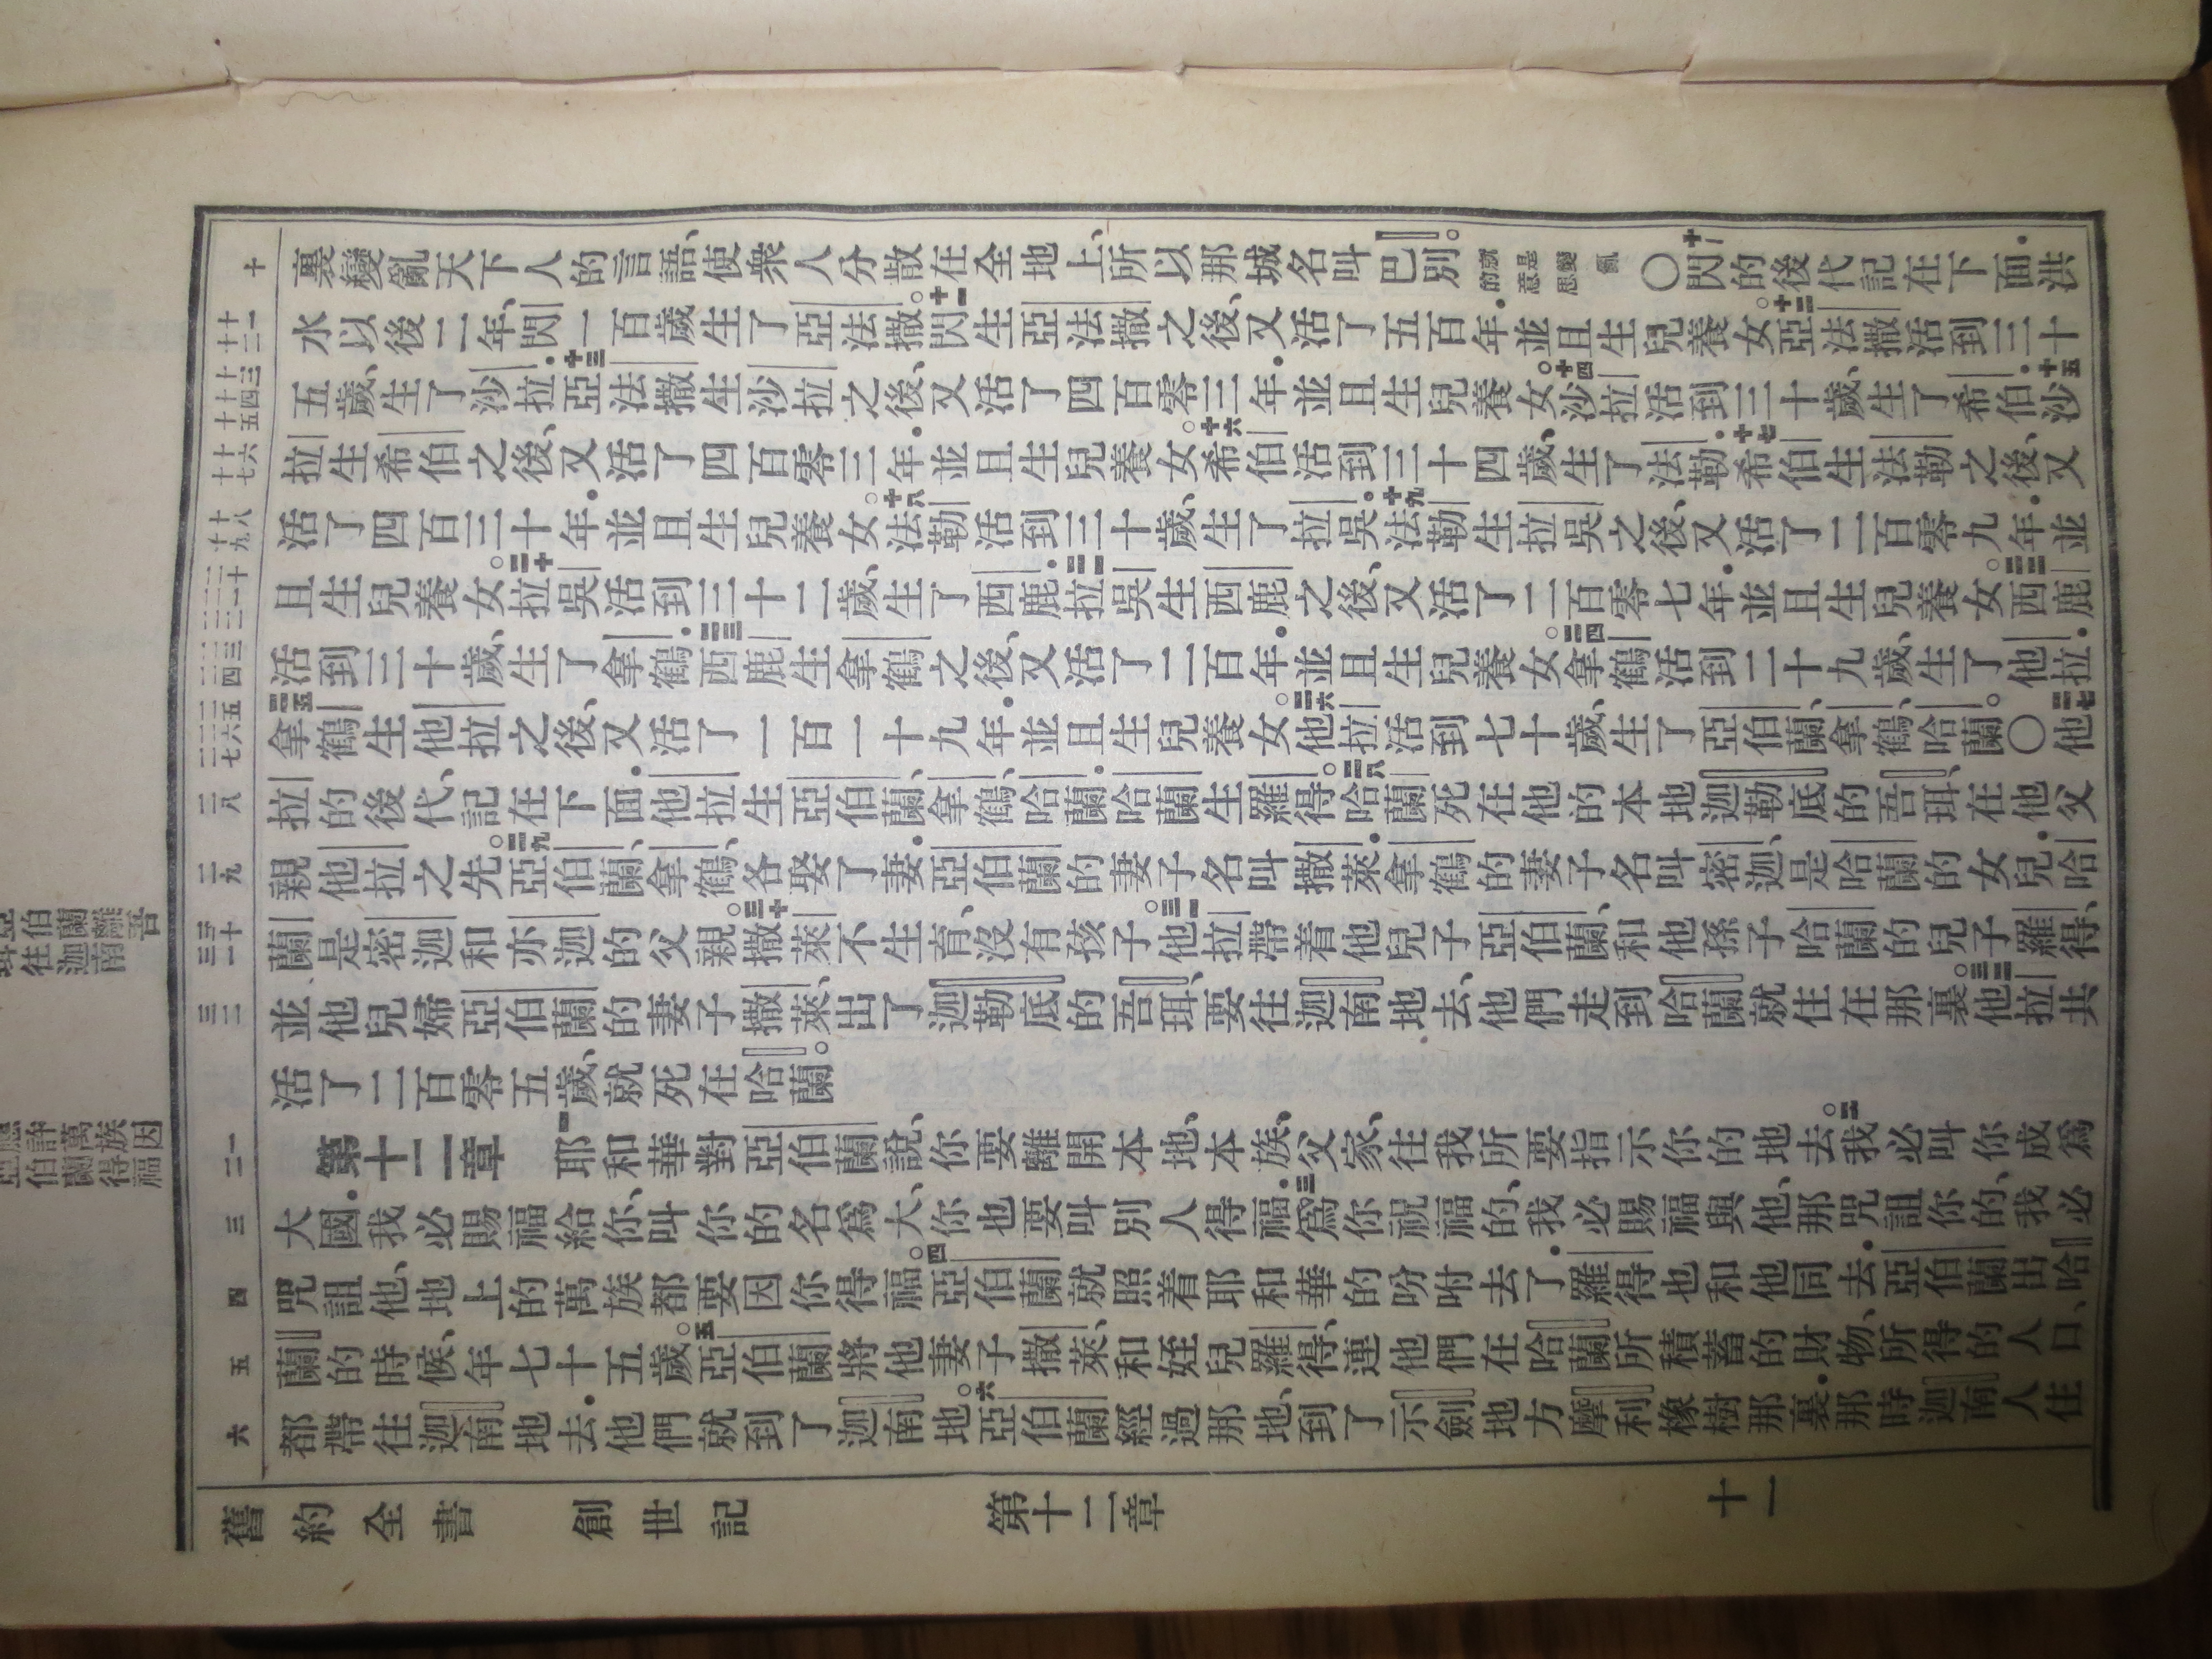 裏變亂天下人的言語、使衆人分散在全地上、所以那城名叫巴別。就是變亂的意思〇十閃的後代記在下面．洪
水以後二年、閃一百歲生了亞法撒。十一閃生亞法撒之後、又活了五百年．並且生兒養女。十二亞法撒活到三十
五歲、生了沙拉．十三亞法撒生沙拉之後、又活了四百零三年．並且生兒養女。十四沙拉活到三十歲、生了希伯．十五沙
拉生希伯之後、又活了四百零三年．並且生兒養女。十六希伯活到三十四歲、生了法勒．十七希伯生法勒之後、又
活了四百三十年．並且生兒養女。十八法勒活到三十歲、生了拉吳。十九法勒生拉吳之後、又活了二百零九年．並
且生兒養女。二十拉吳活到三十二歲、生了西鹿．二一拉吳生西鹿之後、又活了二百零七年．並且生兒養女。二二西鹿
活到三十歲、生了拿鶴．二三西鹿生拿鶴之後、又活了二百年．並且生兒養女。二四拿鶴活到二十九歲、生了他拉．
二五拿鶴生他拉之後、又活了一百一十九年．並且生兒養女。二六他拉活到七十歲、生了亞伯蘭、拿鶴、哈蘭。〇二七他
拉的後代、記在下面．他拉生亞伯蘭、拿鶴、哈蘭．哈蘭生羅得。二八哈蘭死在他的本地迦勒底的吾珥、在他父
親他拉之先。二九亞伯蘭、拿鶴、各娶了妻．亞伯蘭的妻子名叫撒萊．拿鶴的妻子名叫密迦、是哈蘭的女兒．哈
蘭是密迦和亦迦的父親。三十撒萊不生育、沒有孩子。三一他拉帶着他兒子亞伯蘭、和他孫子哈蘭的兒子羅得、
並他兒婦亞伯蘭的妻子撒萊、出了迦勒底的吾珥、要往迦南地去、他們走到哈蘭就住在那裏。三二他拉共
活了二百零五歲、就死在哈蘭。
第十二章　一耶和華對亞伯蘭說、你要離開本地、本族、父家、往我所要指示你的地去。二我必叫你成爲
大國．我必賜福給你、叫你的名爲大、你也要叫別人得福．三爲你祝福的、我必賜福與他、那咒詛你的、我必
咒詛他、地上的萬族都要因你得福。四亞伯蘭就照着耶和華的吩咐去了．羅得也和他同去．亞伯蘭出哈
蘭的時候、年七十五歲。五亞伯蘭將他妻子撒萊、和姪兒羅得、連他們在哈蘭所積蓄的財物、所得的人口、
都帶往迦南地去．他們就到了迦南地。六亞伯蘭經過那地、到了示劍地方摩利橡樹那裏．那時迦南人住
十
十一
十二
十三
十四
十五
十六
十七
十八
十九
二十
二一
二二
二三
二四
二五
二六
二七
二八
二九
三十
三一
三二
一
二
三
四
五
六
舊約全書　創世記　第十二章　十一
伯蘭離吾
往迦南
許
伯蘭萬族因
得福